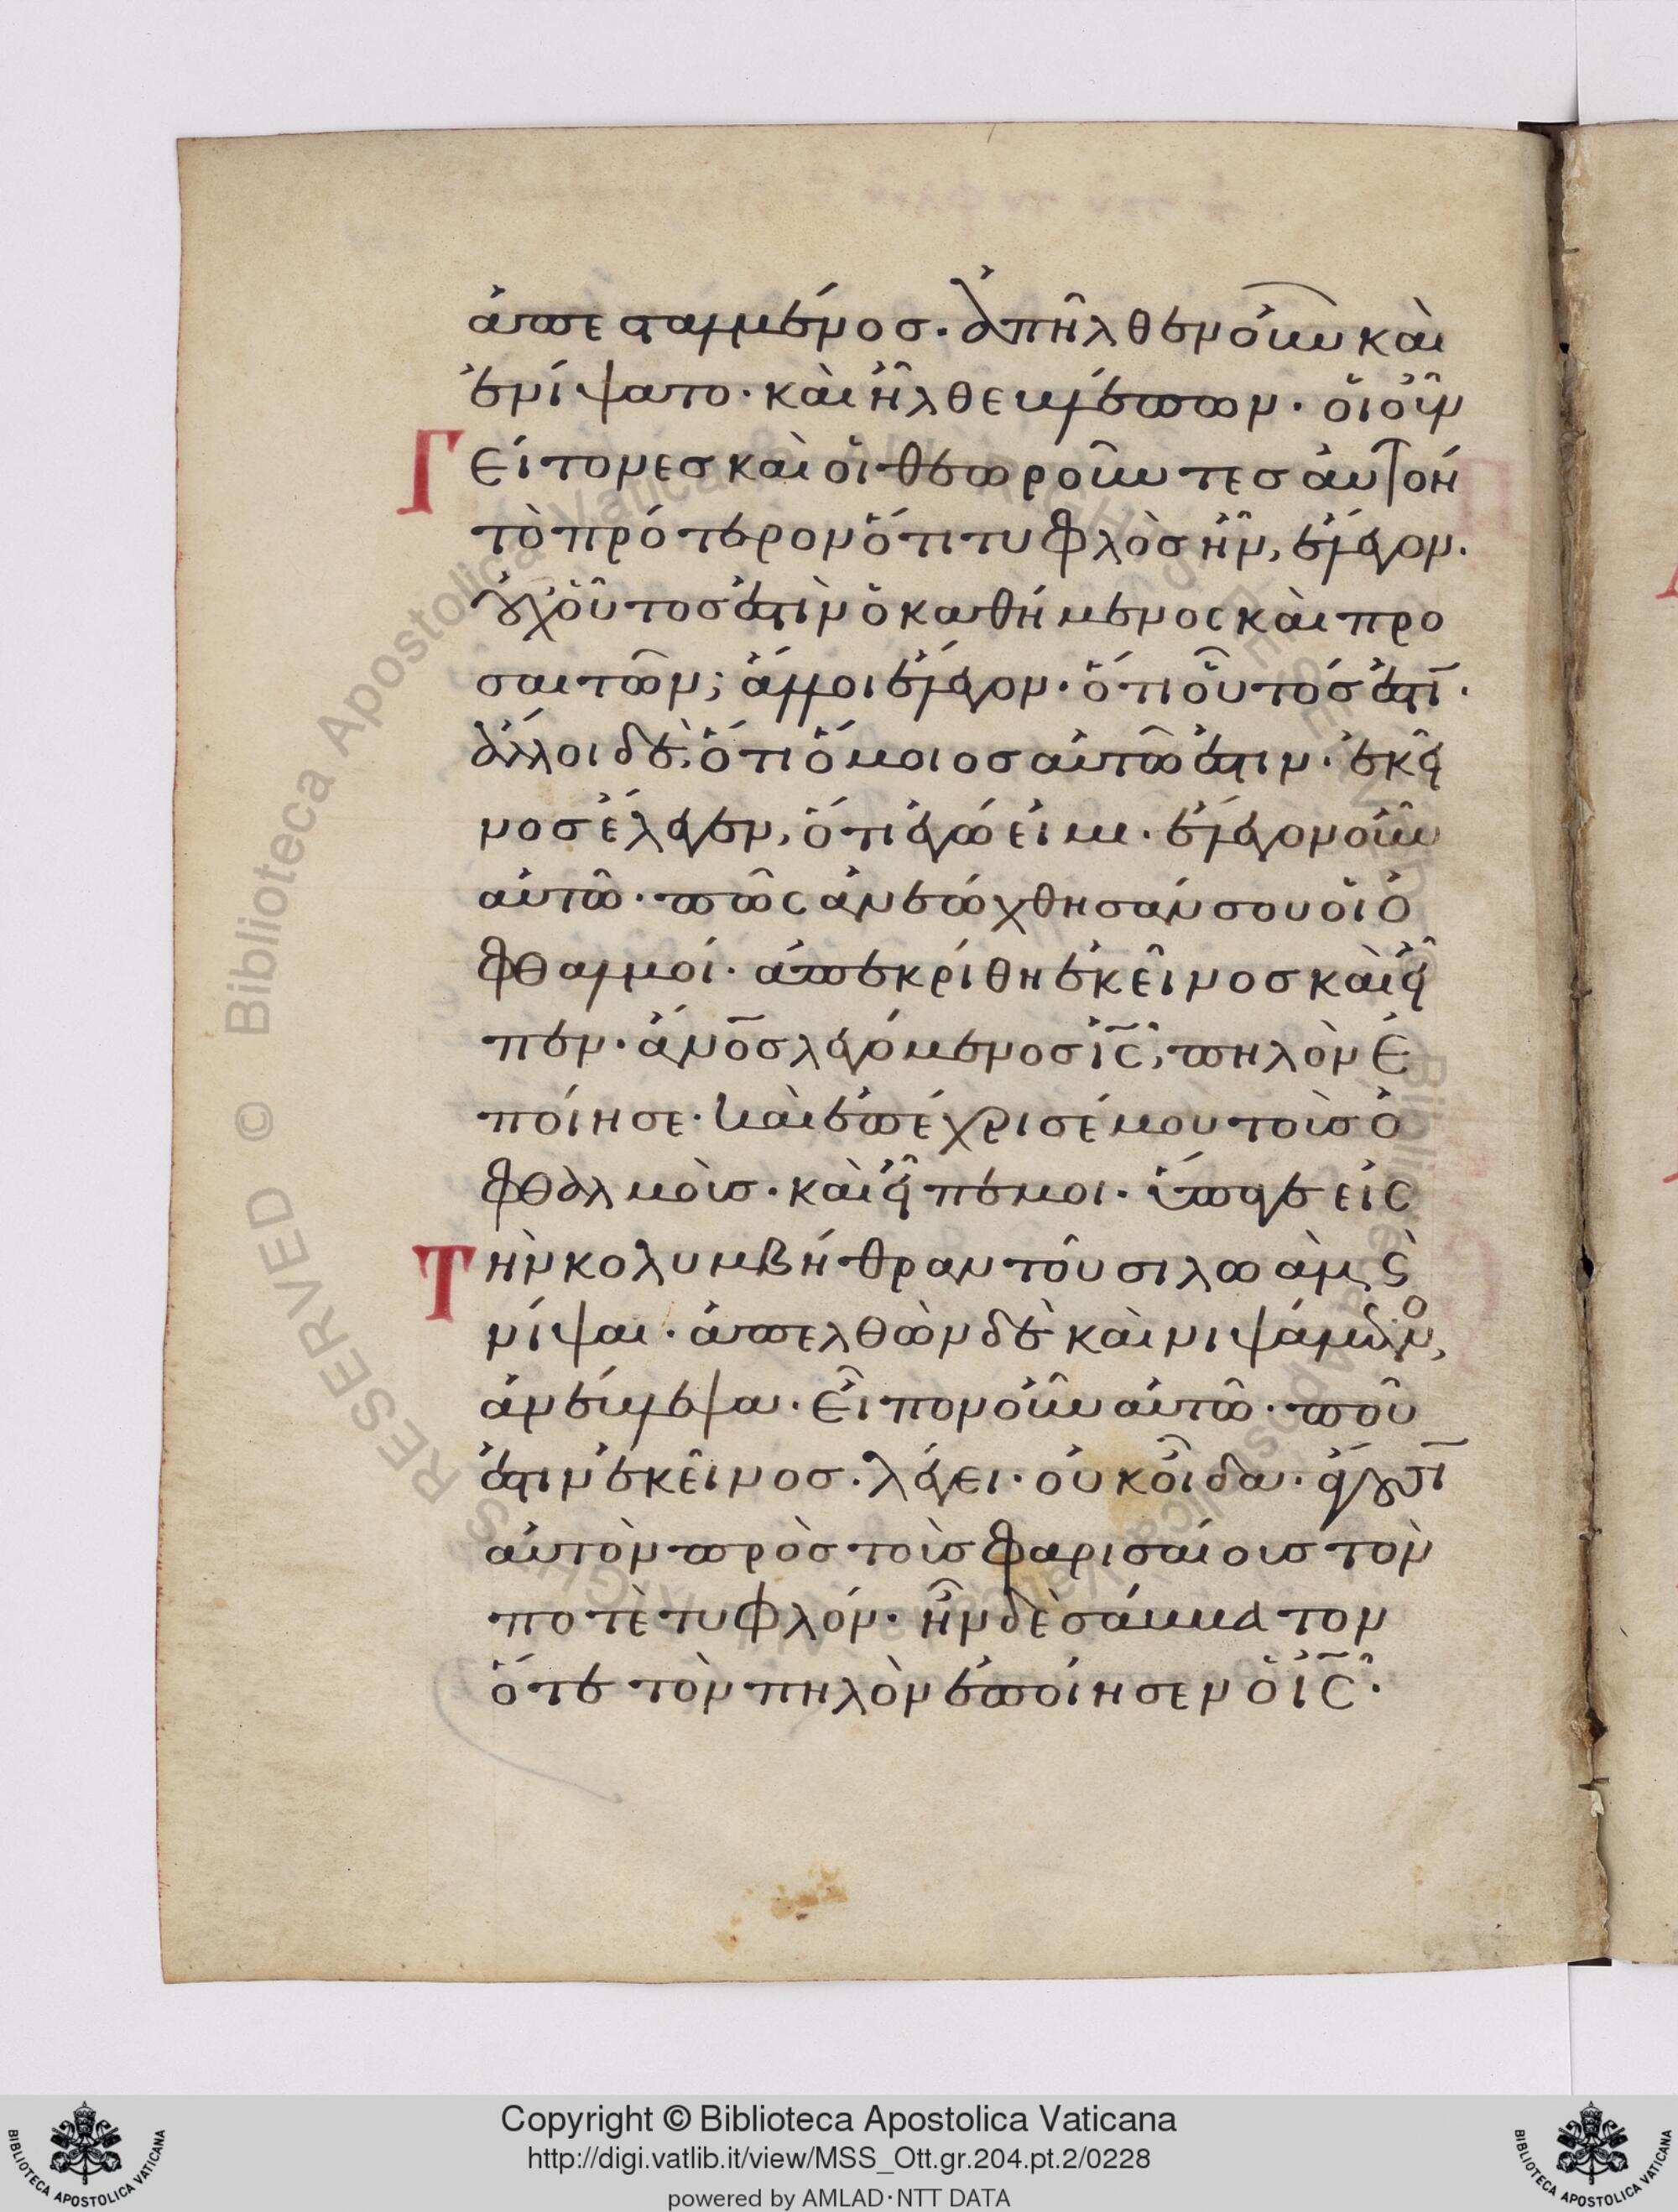 ἀπεσταλμένος. ἀπῆλθεν οὖν καὶ
ἐνίψατο. καὶ ἦλθε βλέπων. οἱ οὖν
Γείτονες καὶ οἱ θεωροῦντες αὐτὸν
τὸ πρότερον ὅτι τυφλὸς ἦν, ἔλεγον.
οὐχ οὗτος ἐστὶν ὁ καθήμενος καὶ προ
σαιτῶν; ἄλλοι ἔλεγον. ὅτι οὗτός ἐστι.
ἄλλοι δὲ, ὅτι ὅμοιος αὐτῶ ἐστιν. ἐκεῖ
νος ἔλεγεν, ὅτι ἐγώ εἰμι. ἔλεγον οὖν
αὐτῶ. πῶς ἀνεώχθησάν σου οἱ ὀ
φθαλμοί. ἀπεκρίθη ἐκεῖνος καὶ εἶ
πεν. ἄνος λεγόμενος ις, πηλὸν ἐ
ποίησε. καὶ ἐπέχρισέ μου τοὺς ὀ
φθαλμοὺς. καὶ εἶπέ μοι. ὕπαγε εἰς
Τὴν κολυμβήθραν τοῦ σιλωὰμ, ϛ
νίψαι. ἀπελθὼν δὲ καὶ νιψάμενο,
ἀνέβλεψα. εἶπον οὖν αὐτῶ. ποῦ
ἐστιν ἐκεῖνος. λέγει. οὐκ οἶδα. ἄγουσι
αὐτὸν πρὸς τοὺς φαρισαίους τὸν
ποτὲ τυφλόν. ἦν δὲ σάββατον
ὅτε τὸν πηλὸν ἐποίησεν ὁ ις.
Copyright © Biblioteca Apostolica Vaticana
http://digi.vatlib.it/view/MSS_Ott.gr.204.pt.2/0228
powered by AMLAD·NTT DATA